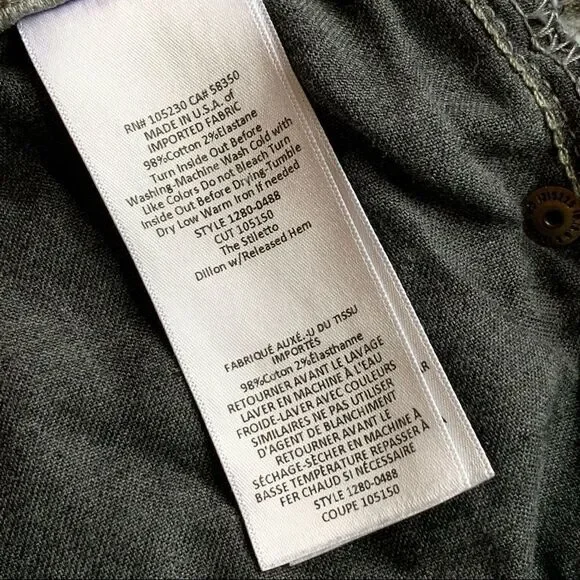 RN# 105230 CA# 58350
MADE IN U.S.A. of
IMPORTED FABRIC
98%Cotton 2%Elastane
Turn Inside Out Before
Washing-Machine Wash Cold with
Like Colors Do Not Bleach Turn
Inside Out Before Drying-Tumble
Dry Low Warm Iron If needed
STYLE 1280-0488
CUT 105150
The Stiletto
Dillon w/Released Hem
FABRIQUÉ AUXÉ.-U DU TISSU
IMPORTÉS
98%Coton 2%Élasthanne
RETOURNER AVANT LE LAVAGE
LAVER EN MACHINE À L'EAU
FROIDE-LAVER AVEC COULEURS
SIMILAIRES NE PAS UTILISER
D'AGENT DE BLANCHIMENT
RETOURNER AVANT LE
SÉCHAGE-SÉCHER EN MACHINE À
BASSE TEMPÉRATURE REPASSER À
FER CHAUD SI NÉCESSAIRE
STYLE 1280-0488
COUPE 105150